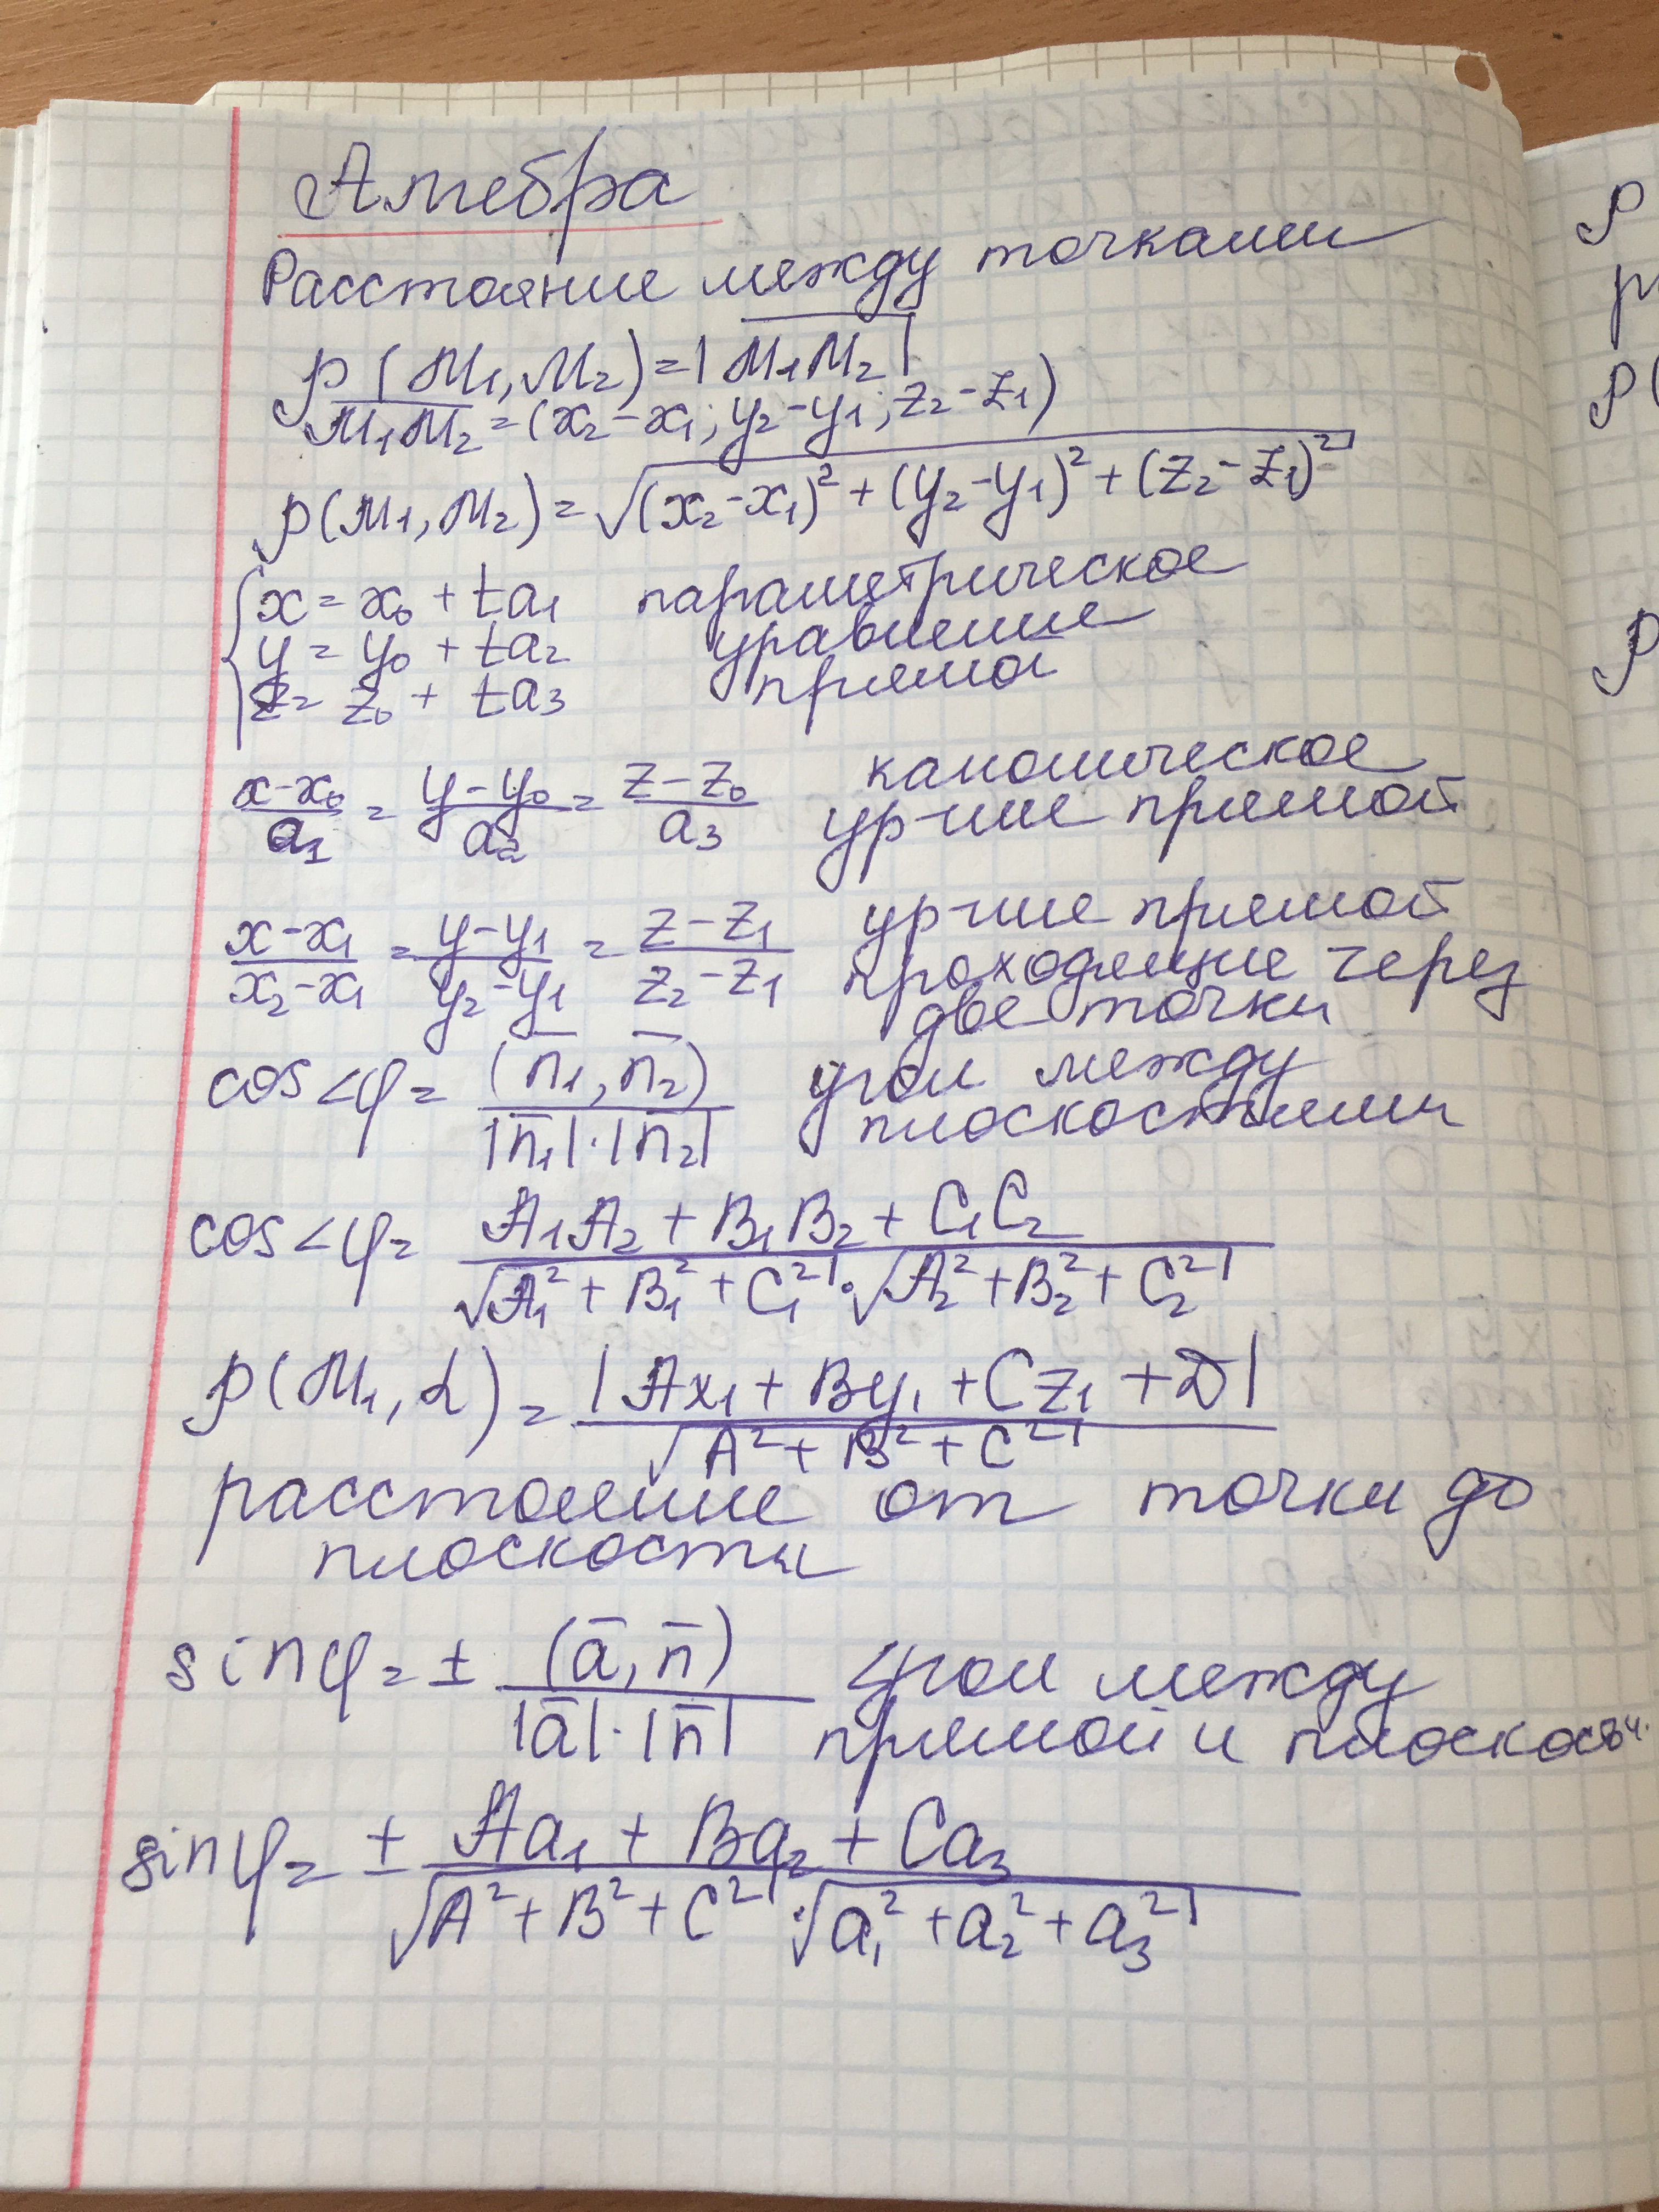 Алгебра
Расстояние между точками
ρ(M₁, M₂) = |M̅₁M̅₂|
M̅₁M̅₂ = (x₂ - x₁; y₂ - y₁; z₂ - z₁)
ρ(M₁, M₂) = √((x₂ - x₁)² + (y₂ - y₁)² + (z₂ - z₁)²)
{ x = x₀ + ta₁ параметрическое
y = y₀ + ta₂ уравнение
z = z₀ + ta₃ прямой
(x - x₀)/a₁ = (y - y₀)/a₂ = (z - z₀)/a₃ каноническое
ур-ние прямой
(x - x₁)/(x₂ - x₁) = (y - y₁)/(y₂ - y₁) = (z - z₁)/(z₂ - z₁) ур-ние прямой
проходящие через
две точки
cos∠φ = (n̅₁, n̅₂)/(|n̅₁|·|n̅₂|) угол между
плоскостями
cos∠φ = (A₁A₂ + B₁B₂ + C₁C₂)/(√(A₁² + B₁² + C₁²)·√(A₂² + B₂² + C₂²))
ρ(M₁, α) = |Ax₁ + By₁ + Cz₁ + D|/√(A² + B² + C²)
расстояние от точки до
плоскости
sinφ = ± (a̅, n̅)/(|a̅|·|n̅|) угол между
прямой и плоскостью
sinφ = ± (Aa₁ + Ba₂ + Ca₃)/(√(A² + B² + C²)·√(a₁² + a₂² + a₃²))
ρ
ρ(
ρ